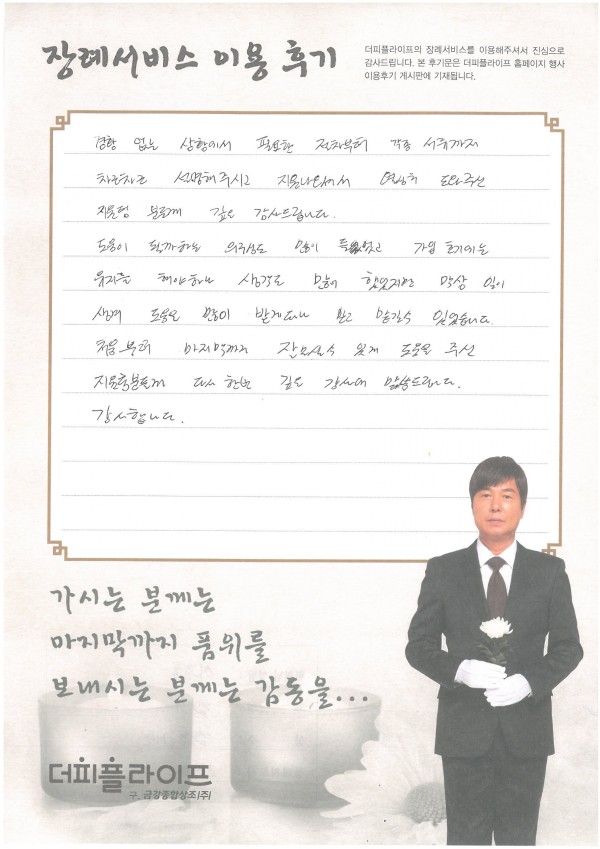 장례서비스 이용 후기
더피플라이프의 장례서비스를 이용해주셔서 진심으로
감사드립니다. 본 후기문은 더피플라이프 홈페이지 행사
이용후기 게시판에 기재됩니다.
경황 없는 상황에서 필요한 절차부터 각종 서류까지
차근차근 설명해주시고 지원나오셔서 도와주신
분들께 깊은 감사드립니다.
도움이 될까하는 의구심도 많이 들었었고 가입 초기에는
유지를 해야하나 생각도 많이 했었지만 막상 일이
생겨 도움을 많이 받게되니 믿고 맡길수 있었습니다.
처음부터 마지막까지 잘 모실수 있게 도움을 주신
다시 한번 깊은 감사의 말씀드립니다.
감사합니다.
가시는 분께는
마지막까지 품위를
보내시는 분께는 감동을...
더피플라이프
구. 금강종합상조(주)